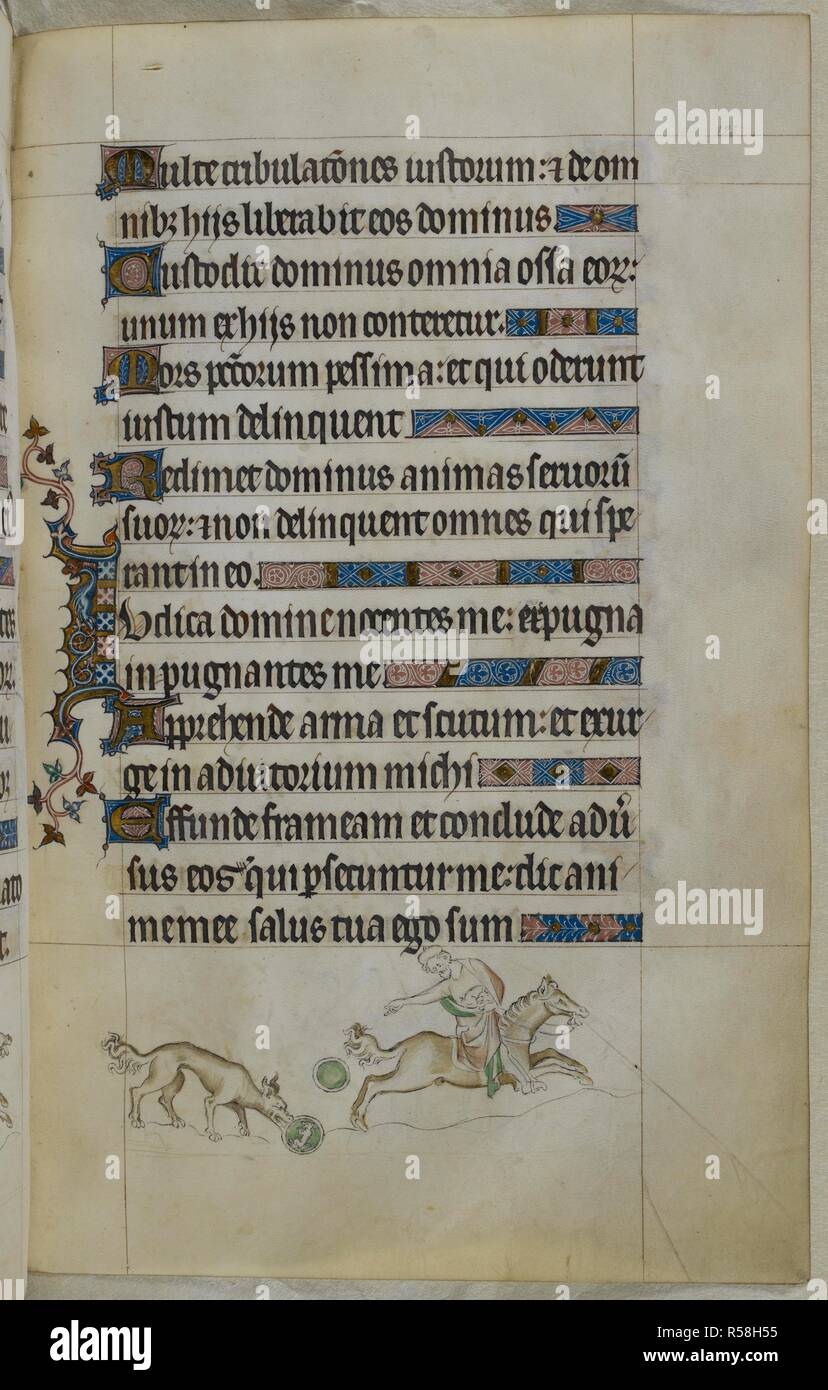 Multe tribulac̄ones iustorum: ⁊ de om
nibꝫ hijs liberabit eos dominus
Custodit dominus omnia ossa eoꝝ:
unum ex hijs non conteretur.
Mors pc̄torum pessima: et qui oderunt
iustum delinquent
Redimet dominus animas seruorū
suoꝝ: ⁊ non delinquent omnes qui spe
rant in eo.
Iudica domine nocentes me: expugna
inpugnantes me
Apprehende arma et scutum: et exur
ge in adiutorium michi
Effunde frameam et conclude adu̔
sus eos qui ꝑsecuntur me: dic ani
me mee salus tua ego sum
alamy
a
alamy
www.alamy.com
R58H55